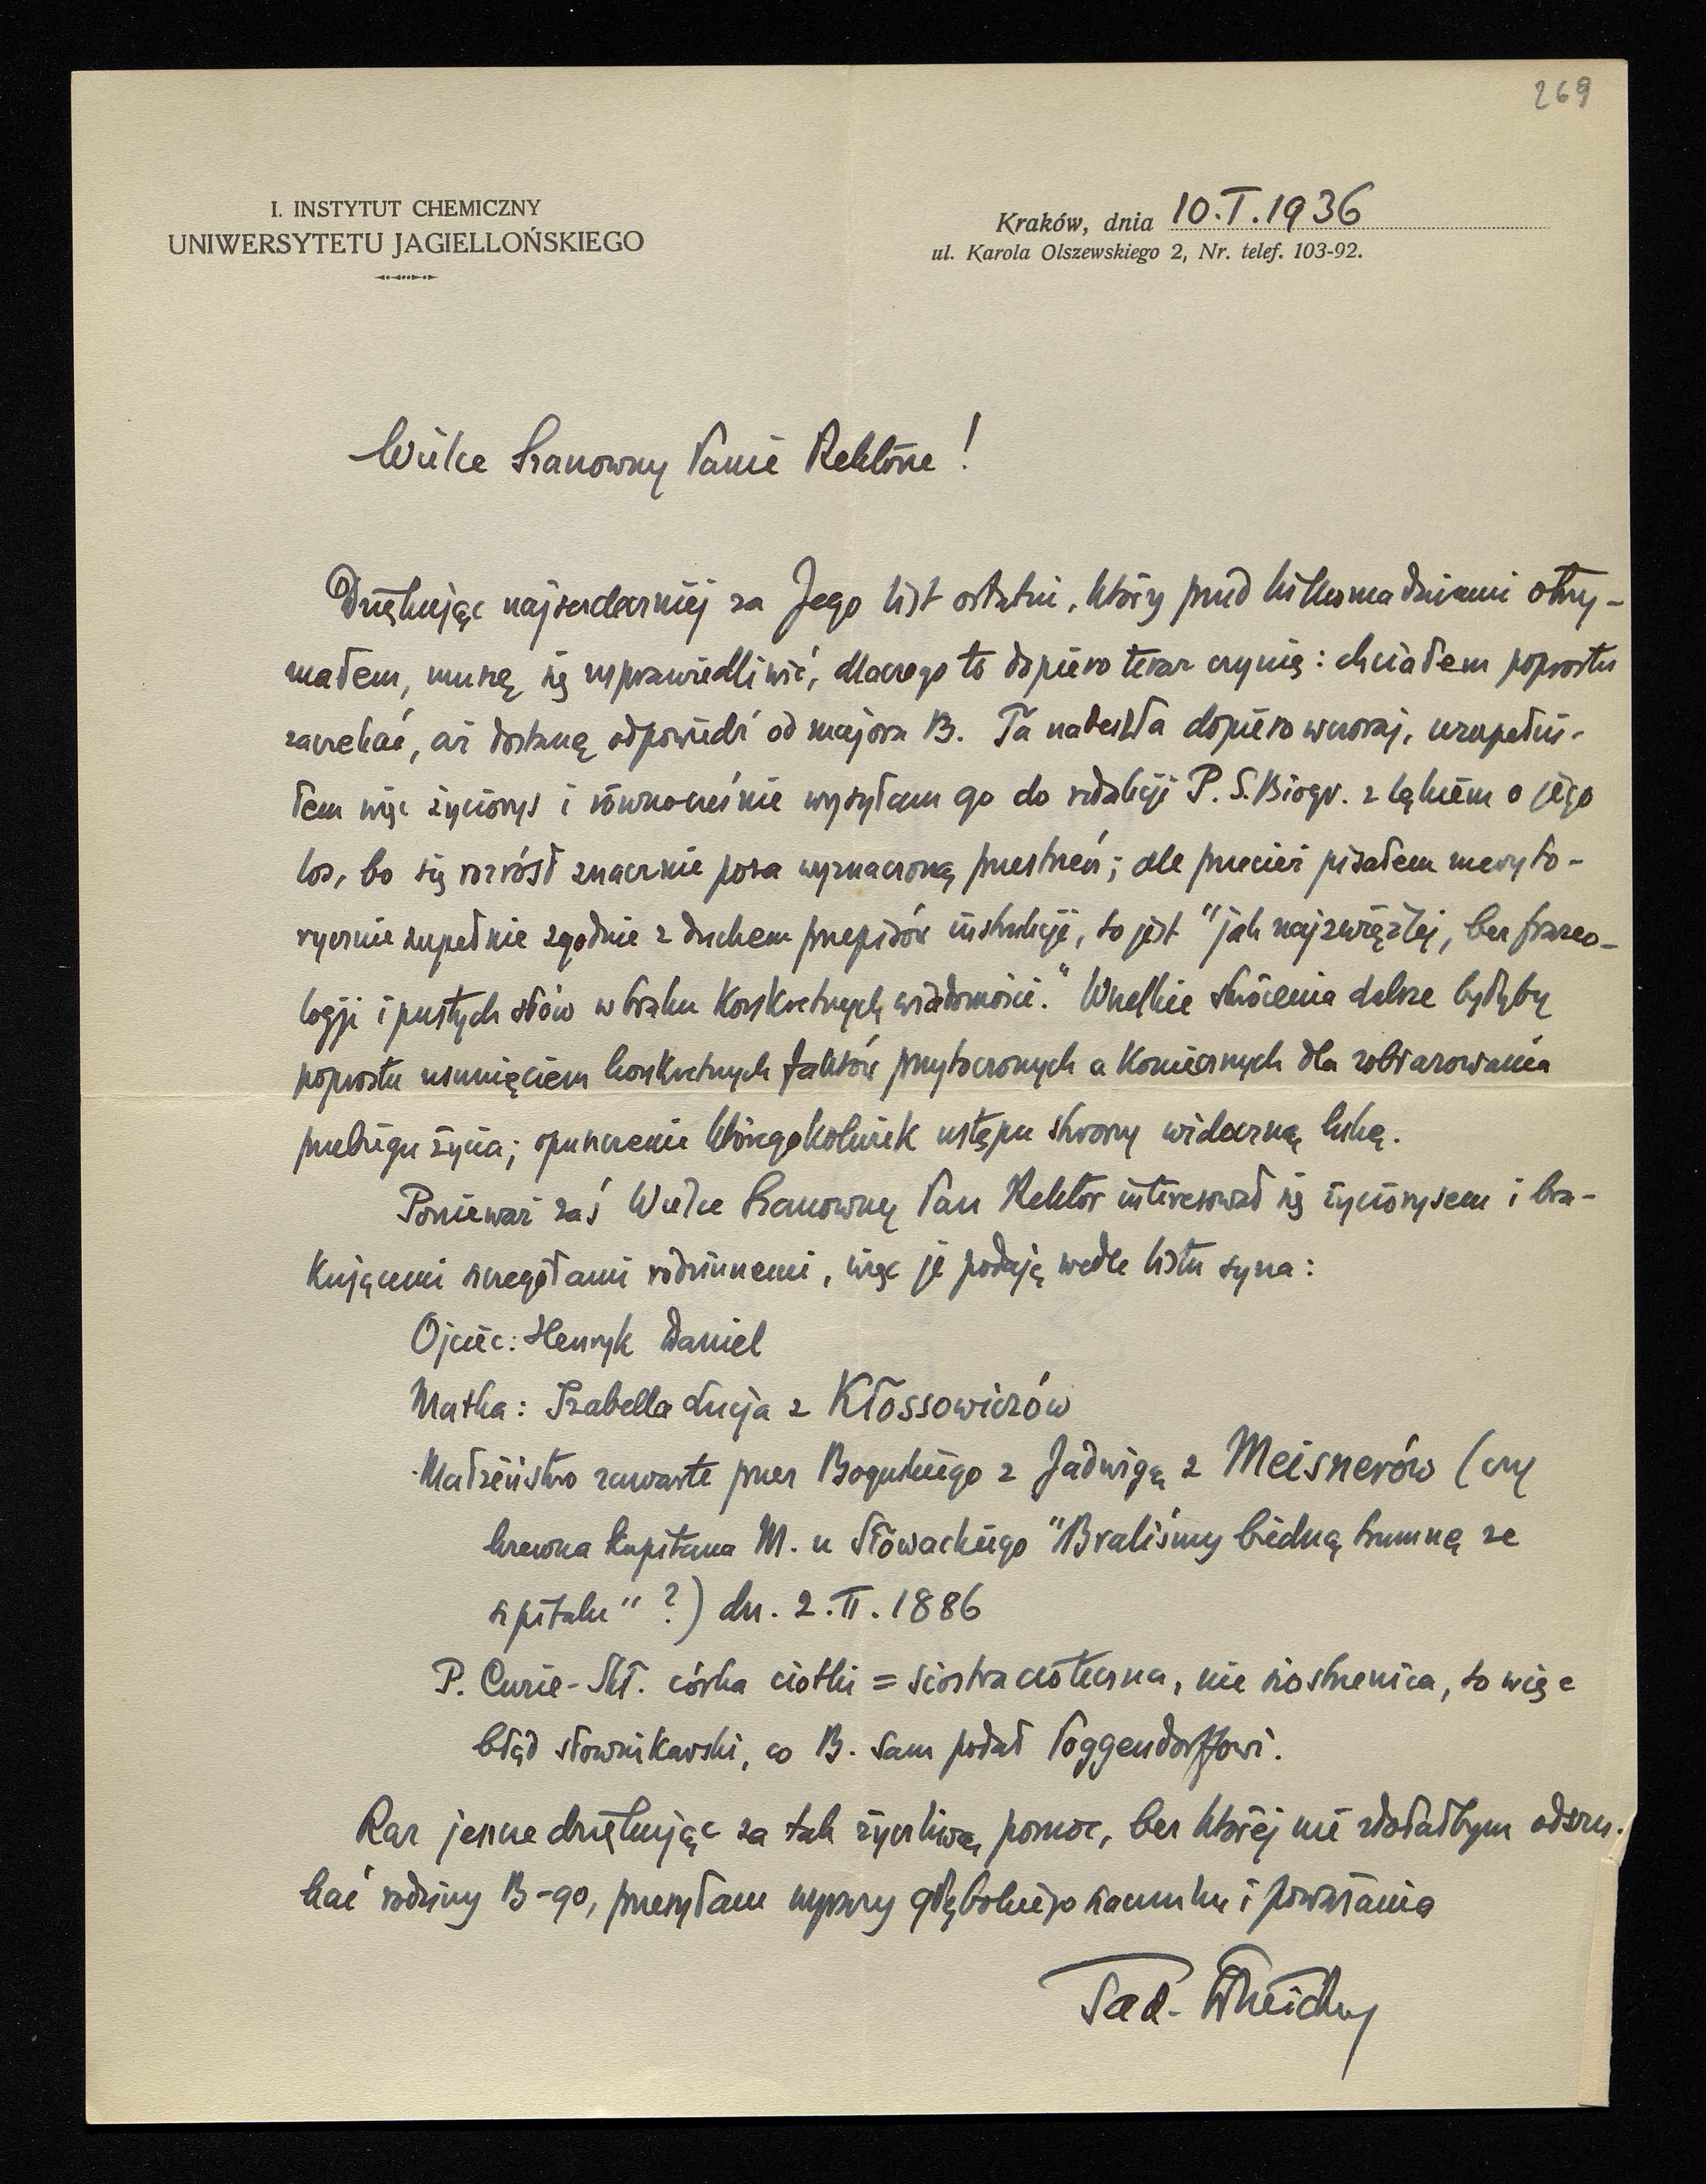 269
I. INSTYTUT CHEMICZNY
UNIWERSYTETU JAGIELLOŃSKIEGO
Kraków, dnia 10.I.1936
ul. Karola Olszewskiego 2, Nr. telef. 103-92.
Wielce Szanowny Panie Rektorze!
Dziękując najserdeczniej za Jego list ostatni, który przed kilkoma dniami otrzy-
małem, muszę się usprawiedliwić, dlaczego to dopiero teraz czynię: chciałem poprostu
zaczekać, aż dostanę odpowiedź od majora B. Ta nadeszła dopiero wczoraj, uzupełni-
łem więc życiorys i równocześnie wysyłam go do redakcji P. S. Biogr. z lękiem o jego
los, bo się rozrósł znacznie poza wyznaczoną przestrzeń; ale przecież pisałem meryto-
rycznie zupełnie zgodnie z duchem przepisów instrukcji, to jest "jak najzwięźlej, bez frazeo-
logji i pustych słów w braku konkretnych wiadomości." Wszelkie skrócenia dalsze byłyby
poprostu usunięciem konkretnych faktów przytoczonych a koniecznych dla zobrazowania
przebiegu życia; opuszczenie któregokolwiek ustępu stworzy widoczną lukę.
Ponieważ zaś Wielce Szanowny Pan Rektor interesował się życiorysem i bra-
kującemi szczegółami rodzinnemi, więc je podaję wedle listu syna:
Ojciec: Henryk Daniel
Matka: Izabella Łucja z Kłossowiczów
Małżeństwo zawarte przez Boguskiego z Jadwigą z Meisnerów (czy
krewna kapitana M. u Słowackiego "Braliśmy biedną trumnę ze
szpitalu" ?) dn. 2.II.1886
P. Curie-Skł. córka ciotki = siostra cioteczna, nie siostrzenica, to więc
błąd słownikarski, co B. sam podał Poggendorffowi.
Raz jeszcze dziękując za tak życzliwą pomoc, bez której nie zdołałbym odszu-
kać rodziny B-go, przesyłam wyrazy głębokiego szacunku i poważania
Tad. Estreicher